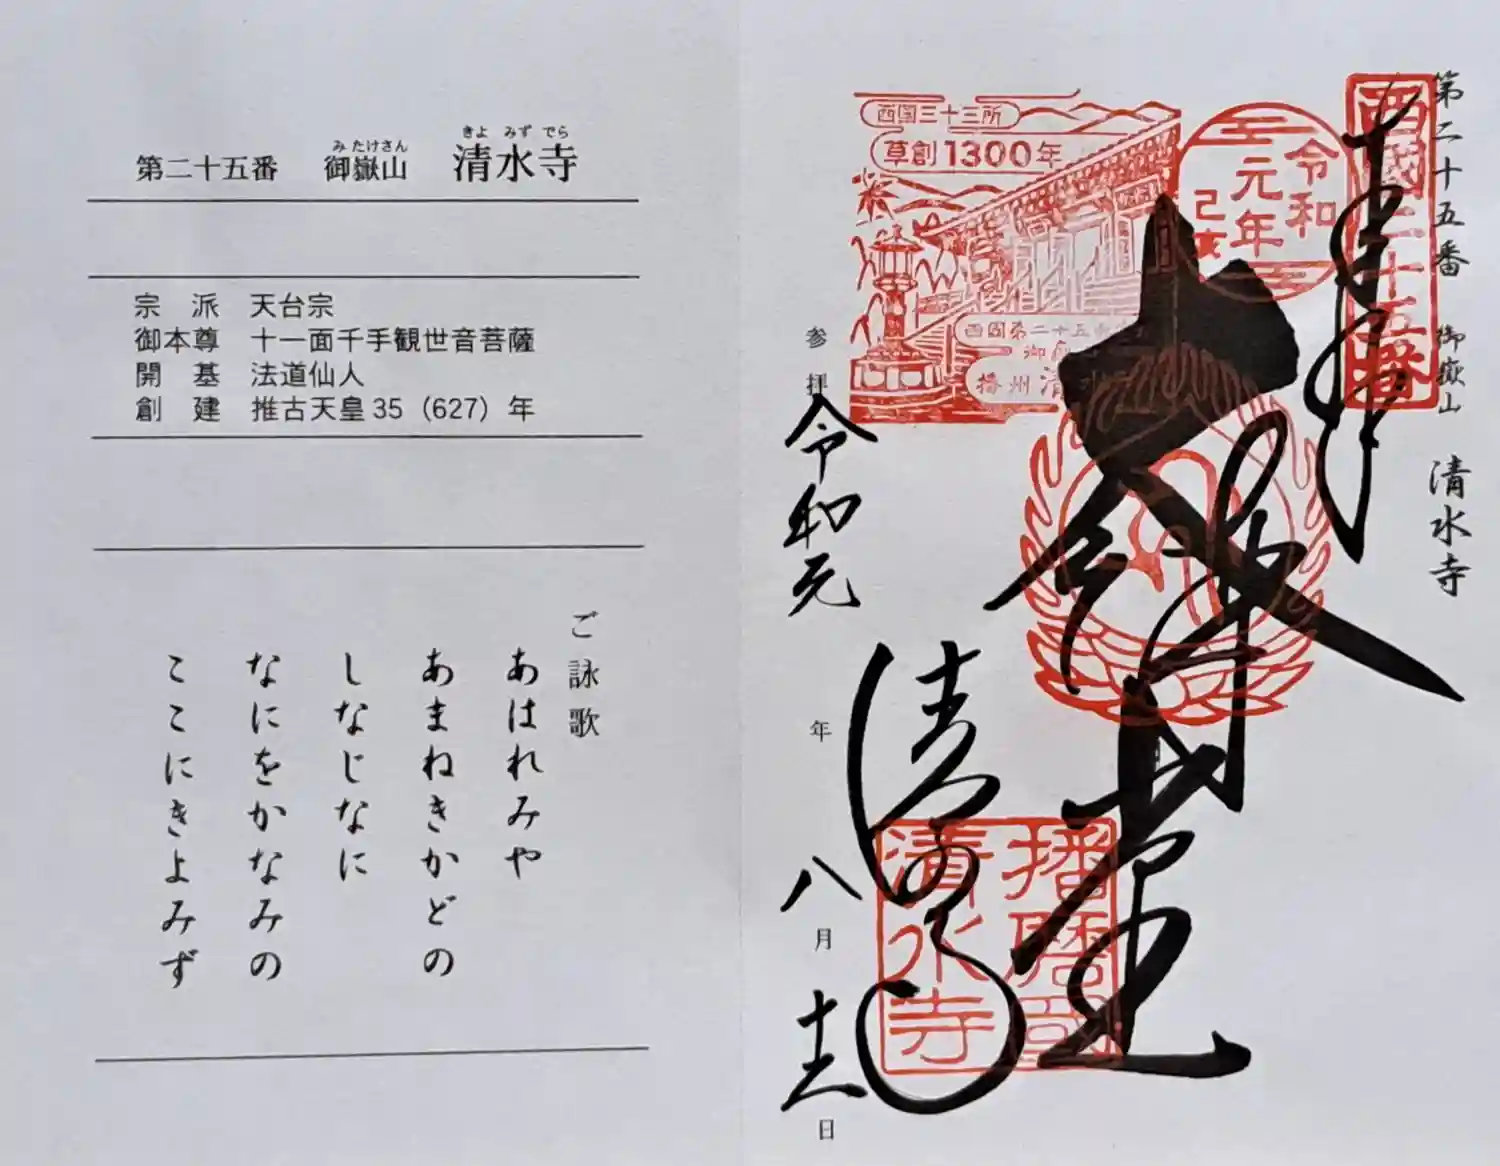 第二十五番 御嶽山 清水寺
み たけさん きよ みず でら
宗 派 天台宗
御本尊 十一面千手観世音菩薩
開 基 法道仙人
創 建 推古天皇35（627）年
ご詠歌
あはれみや
あまねきかどの
しなじなに
なにをかなみの
ここにきよみず
第二十五番 御嶽山 清水寺
西國二十五番
奉拝
令和
元年
己亥
西国三十三所
草創1300年
西国第二十五番
播州清水
大悲堂
播磨國
清水寺
清水寺
参拝 令和元年 八月 日